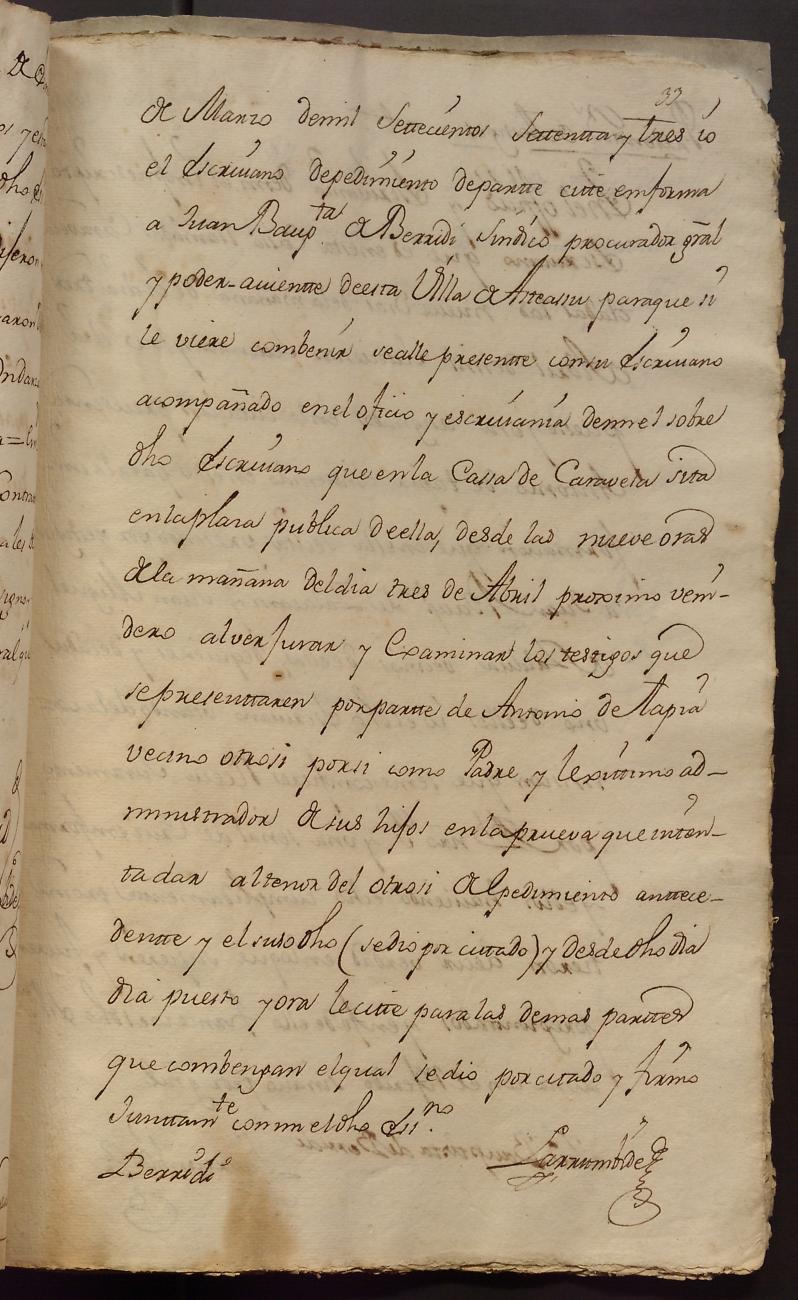 33
de Marzo demil Settecientos Settentta y tres io
el Escrivano depedimiento departte citte enforma
a Juan Baupta de Berridi Síndico procurador gral
y poder-aviente deesta Villa de Asteasu paraque si
le viere combenir sealle presentte consu Escrivano
acompañado enel oficio y escrivanía demi el sobre
dho Escrivano que en la Cassa de Caravela sita
enlaplaza publica deella, desde las nueve oras
de la mañana deldia tres de Abril proximo veni-
dero alver jurar y Examinar los testigos que
sepresenttaren por partte de Antonio de Tapia
vecino otrosi porsi como Padre y lexittimo ad-
ministrador de sus hijos enla prueva que inten-
ta dar altenor del otrosi del pedimiento anttece-
dentte y el susodho (sedio por cittado) y desde dho dia
dia puesto y ora lecitte para las demas parttes
que combengan elqual se dio por citado y firmo
Junttamte con mi el dho Essno
Berridi Larrumbide